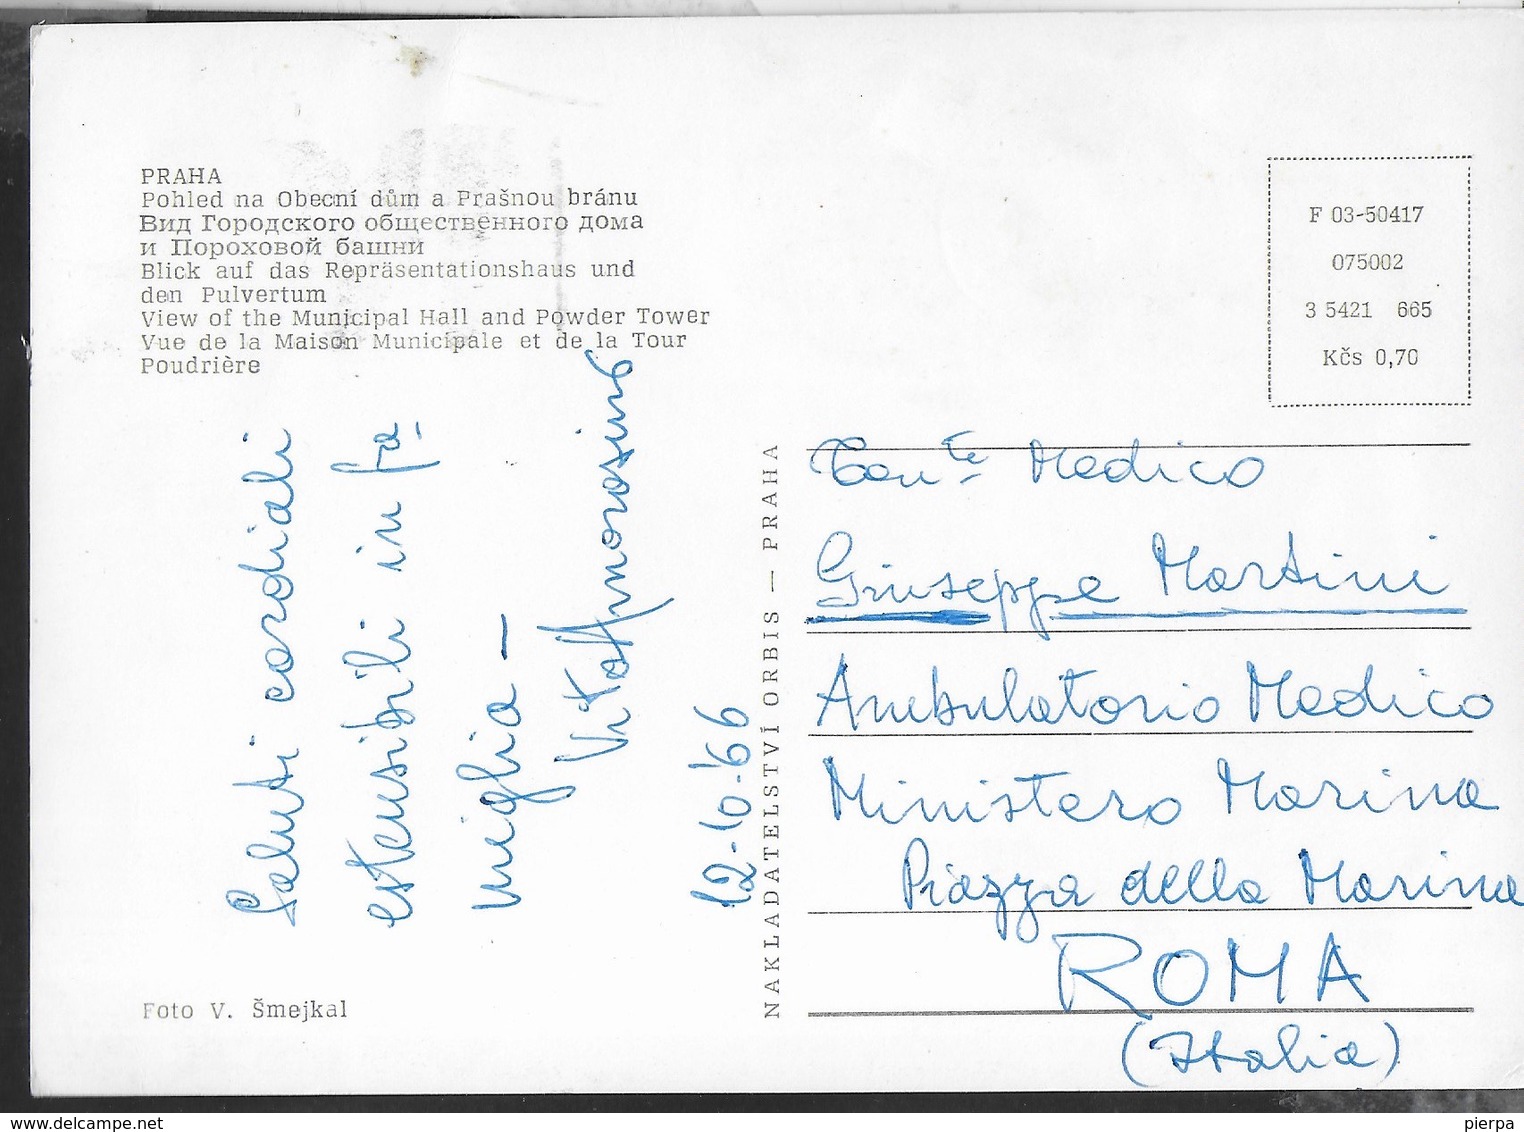 PRAHA
Pohled na Obecní dům a Prašnou bránu
Вид Городского общественного дома
и Пороховой башни
Blick auf das Repräsentationshaus und
den Pulvertum
View of the Municipal Hall and Powder Tower
Vue de la Maison Municipale et de la Tour
Poudrière
F 03-50417
075002
3 5421 665
Kčs 0,70
Saluti cordiali
estensibili in fa-
miglia —
Vito Amorosino
12-10-'66
NAKLADATELSTVÍ ORBIS — PRAHA
Ten.te Medico
Giuseppe Martini
Ambulatorio Medico
Ministero Marina
Piazza della Marina
ROMA
(Italia)
Foto V. Šmejkal
pierpa